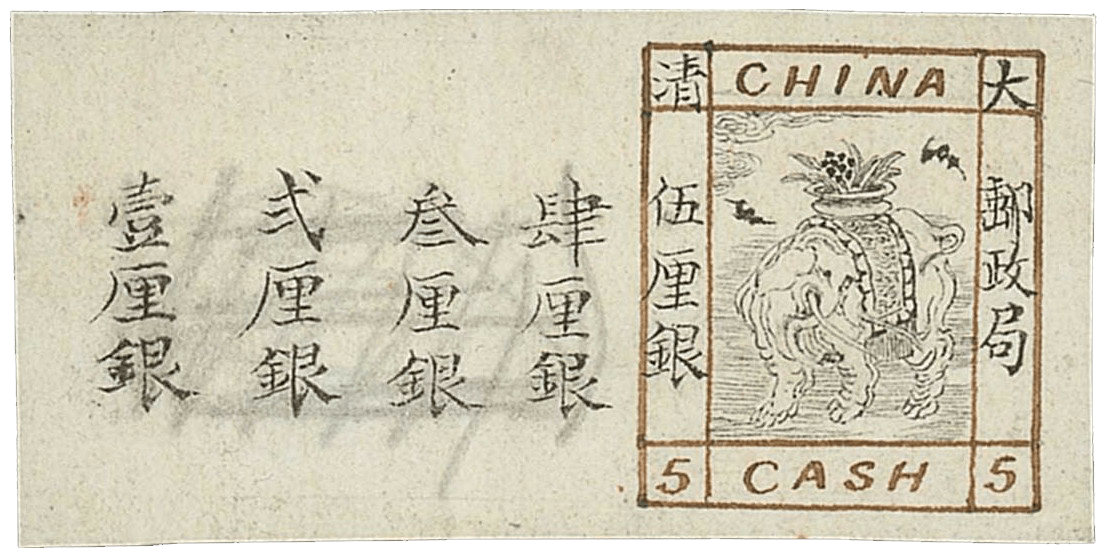 大清
CHINA
郵政局
伍厘銀
5 CASH 5
肆厘銀
叁厘銀
弍厘銀
壹厘銀